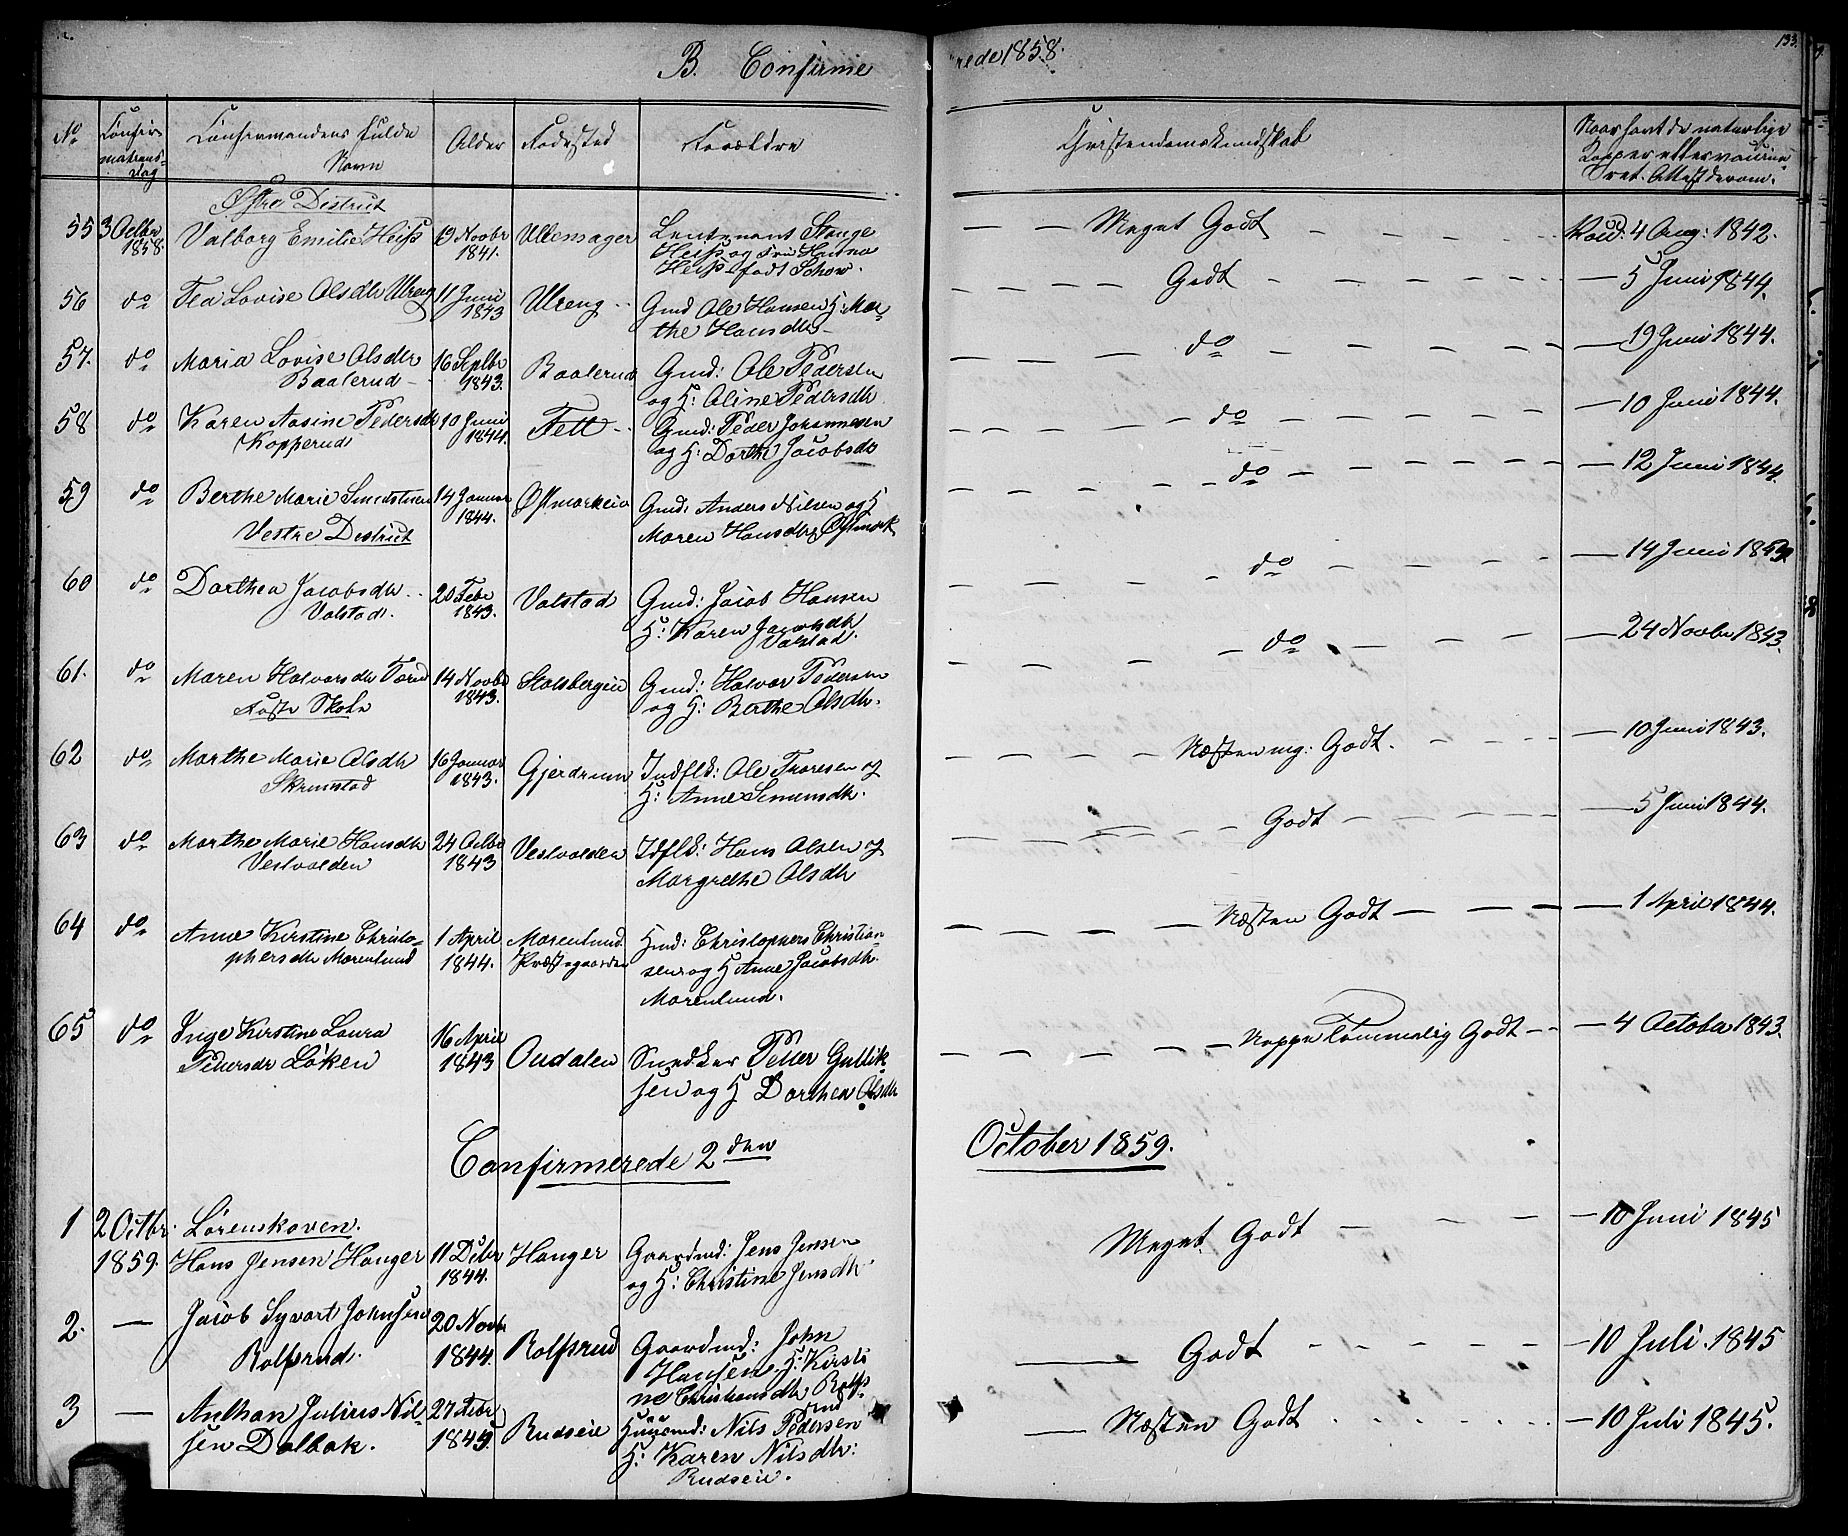 B. Confirme rede 1858. 133.
No Confirmations-dag Confirmandens fulde Navn Alder Fødested Forældre Christendomskundskab Naar havt de naturlige Kopper eller vaccineret. Attest derom.
Østre District
55 3 Octbr 1858. Valborg Emilie Heiss 19 Novbr 1841. Ullensager Lieutenant Stange Heiss og Fru Heiss født Schow. Meget Godt 4 Aug: 1842.
56 do Tea Lovise Olsdtr Ulreng 11 Juni 1843 Ulreng Gmd Ole Hansen H: Marthe Hansdtr Godt 5 Juni 1844.
57. do Maria Lovise Olsdtr Baalerud 16 Septbr 1843. Baalerud Gmd: Ole Pedersen og H: Oline Pedersdtr do 19 Juni 1844.
58 do Karen Aasine Pedersdtr Kopperud 10 Juni 1844. Fett Gmd: Peder Johannesen og H: Dorthe Jacobsdtr do 10 Juni 1844.
59 do Berthe Marie Smedstuen 14 Januar 1844. Østmarkeie Gmd: Anders Nilsen og H Maren Hansdtr Østmark do 12 Juni 1844
Vestre District
60 do Dorthea Jacobsdtr Valstad. 20 Febr 1843. Valstad Gmd: Jacob Hansen H: Karen Jacobsdtr Valstad. do 14 Juni
61. do Maren Halvorsdtr 14 Novbr 1843. Stalsbergeie Gmd: Halvor Pedersen og H: Berthe Olsdtr. do 24 Novbr 1843.
Faste Skole
62 do Marthe Marie Olsdtr Skrimstad 16 Januar 1843. Gjerdrum Indflk: Ole Thoresen og H: Anne Simensdtr. Næsten mg: Godt. 10 Juni 1843.
63 do Marthe Marie Hansdtr Vestvolden 24 Octbr 1843 Vestvolden Idflk: Hans Olsen og Margrethe Olsdtr Godt 5 Juni 1844.
64 do Anne Kirstine Christophersdtr Morenlund 1 April 1844. Morenlund Præstegaarden Hmd: Christophers Christiansen og H Anne Jacobsdtr. Morenlund. Næsten Godt 1 April 1844.
65 do Inge Kirstine Laura Petersdr Løken 16 April 1843 Oudalen Snedker Petter Gulliksen og H Dorthea Olsdtr Neppe Temmelig Godt 4 October 1843.
Confirmerede 2den October 1859.
1 2 Octbr. 1859. Lørenskoven. Hans Jensen Hauger 11 Decbr 1844. Hauger Gaardmd: Jens Jensen og H: Christine Jensdtr. Meget Godt 10 Juni 1845
2. Jacob Syvart Johnsen Rolfsrud. 20 Novbr 1844. Rolfsrud Gaardmd: John Hansen. H: Kirstine Christiansdtr Rolfsrud Godt 10 Juli. 1845
3 Anthon Julius Nilsen Dalbak. 27 Febr 1845 Rudseie Huusmd: Nils Pedersen H: Karen Nilsdtr: Rudseie. Næsten Godt 10 Juli 1845.